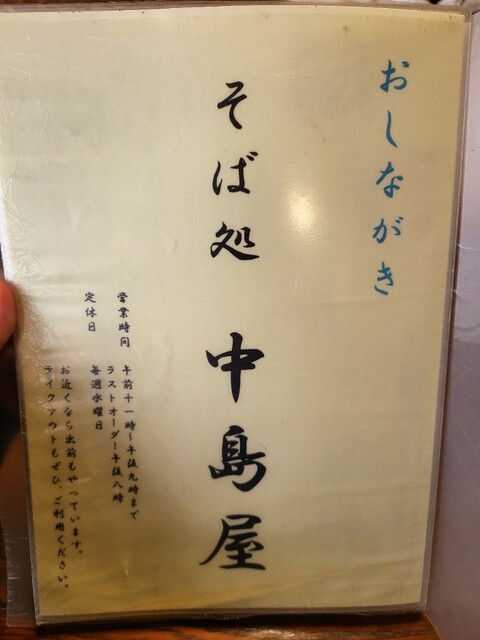 おしながき
そば処 中島屋
営業時間 午前十一時～午後九時まで
ラストオーダー午後八時
定休日 毎週水曜日
お近くなら出前もやっています。
テイクアウトもぜひ、ご利用ください。